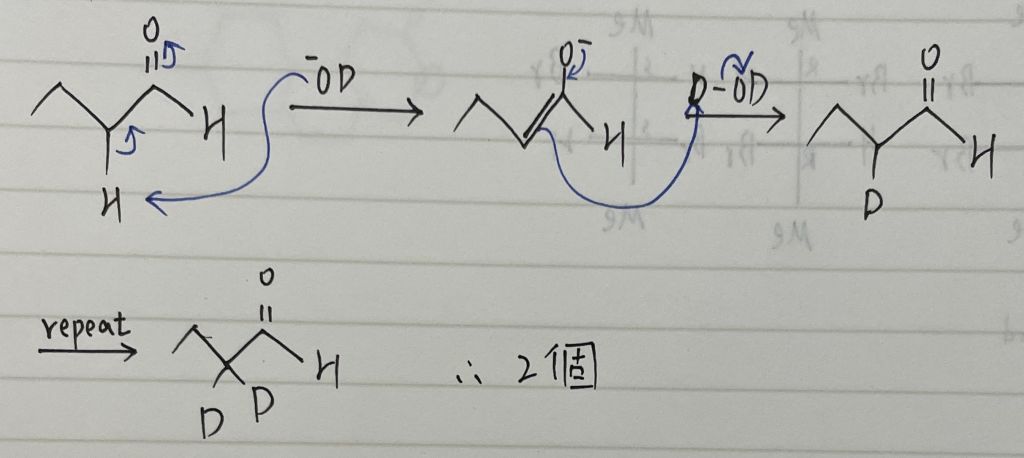 O O⁻ O
⁻OD D-OD
H H H
H D
repeat O
H ∴ 2個
D D